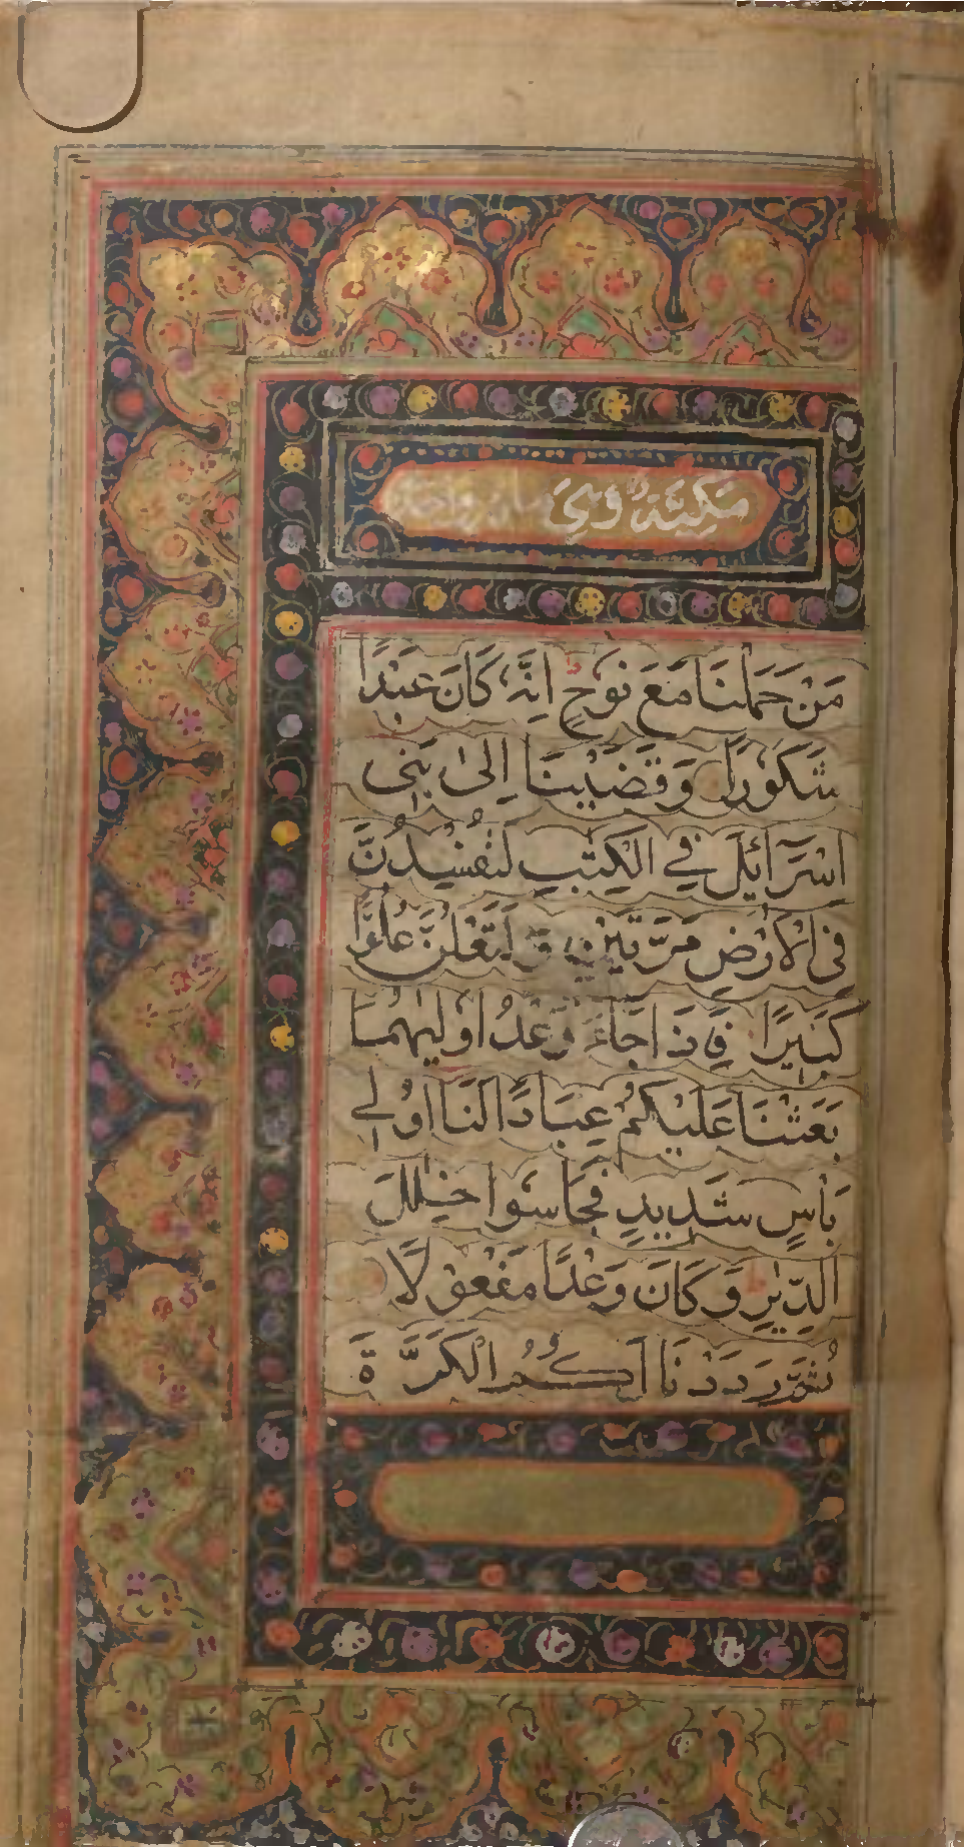 مَكِيَّةٌ وَهِيَ
مَنْ حَمَلْنَا مَعَ نُوْحٍ اِنَّهٗ كَانَ عَبْدًا
شَكُوْرًا وَقَضَيْنَا اِلٰى بَنِى
اِسْرَآئِيْلَ فِي الْكِتٰبِ لَتُفْسِدُنَّ
فِى الْاَرْضِ مَرَّتَيْنِ وَلَتَعْلُنَّ عُلُوًّا
كَبِيْرًا فَاِذَا جَآءَ وَعْدُ اُوْلٰىهُمَا
بَعَثْنَا عَلَيْكُمْ عِبَادًا لَّنَا اُولِي
بَاْسٍ شَدِيْدٍ فَجَاسُوْا خِلٰلَ
الدِّيَارِ وَكَانَ وَعْدًا مَفْعُوْلًا
ثُمَّ رَدَدْنَا لَكُمُ الْكَرَّةَ